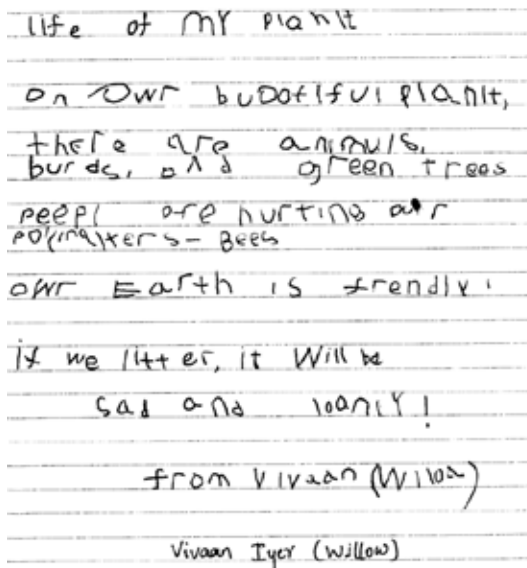 life of my planit
on owr budotiful planit,
there are animuls,
burds, and green trees
peepl are hurting our
polinaters - Bees
owr Earth is frendly!
if we litter, it will be
sad and loanly!
from Vivaan (Wiloa)
Vivaan Iyer (Willow)